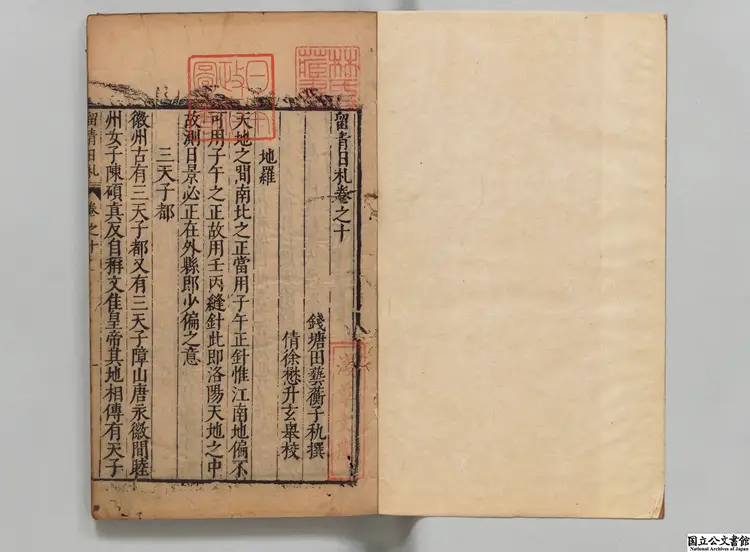 留青日札卷之十
錢塘田藝蘅子秇撰
倩徐懋升玄舉校
地羅
天地之閒南北之正當用子午正針惟江南地偏不
可用子午之正故用壬丙縫針此即洛陽天地之中
故測日景必正在外縣即少偏之意
三天子都
徽州古有三天子都又有三天子障山唐永徽間睦
州女子陳碩真反自稱文佳皇帝其地相傳有天子
留青日札 卷之十
林氏藏書
日本政圖
国立公文書館
National Archives of Japan